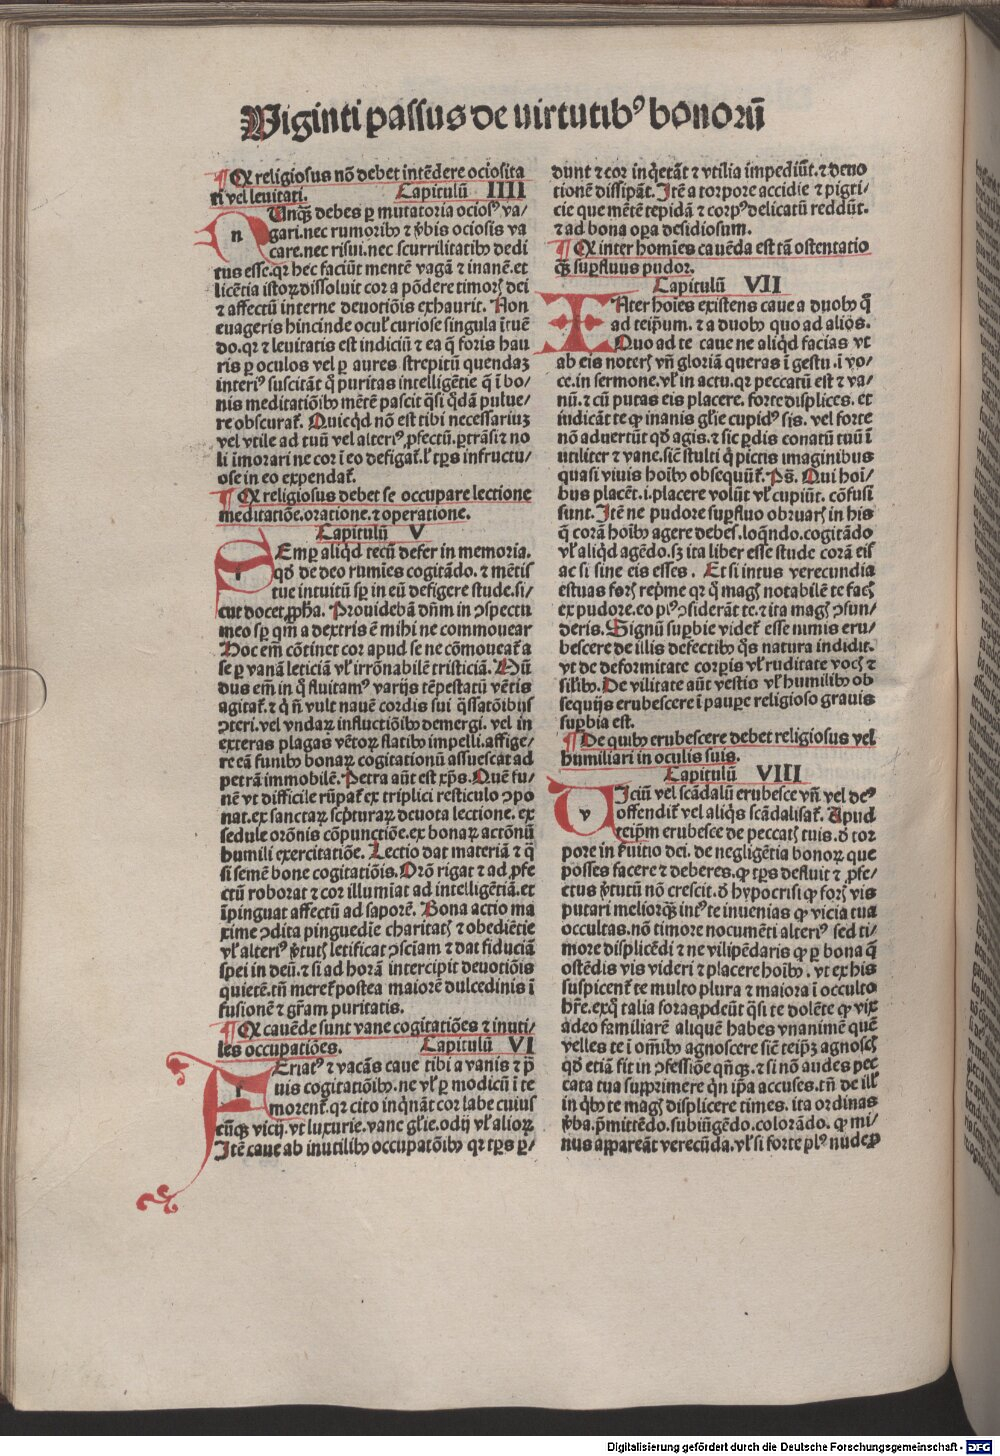 Viginti passus de uirtutibꝰ bonorū
¶ Qꝫ religiosus nō debet intēdere ociosita
ti vel leuitati. Capitulū IIII
nUnqꝫ debes ꝑ mutatoria ociosꝰ va/
gari.nec rumoribꝫ ⁊ v̉bis ociosis va
care.nec risui.nec scurrilitatibꝫ dedi
tus esse.qꝛ hec faciūt mentē vagā ⁊ inanē.et
licētia istoꝝ dissoluit cor a pōdere timorꝭ dei
⁊ affectū interne deuotiōis exhaurit. Non
euageris hincinde oculꝭ curiose singula ītuē
do.qꝛ ⁊ leuitatis est indiciū ⁊ ea q̄ foris hau
ris ꝑ oculos vel ꝑ aures strepitū quendaꝫ
interiꝰ suscitāt q̄ puritas intelligētie q̄ ī bo/
nis meditatiōibꝫ mētē pascit q̄si q̄dā pulue/
re obscuraꝭ. Quicq̄d nō est tibi necessariuꝫ
vel vtile ad tuū vel alteriꝰ ꝓfectū.ꝑtrāsi ⁊ no
li imorari ne cor ī eo defigaꝭ.ł tp̄s infructu/
ose in eo expendaꝭ.
¶ Qꝫ religiosus debet se occupare lectione
meditatiōe.oratione.⁊ operatione.
Capitulū V
sEmꝑ aliq̄d tecū defer in memoria.
qd̄ de deo rumīes cogitādo.⁊ mētis
tue intuitū sꝑ in eū defigere stude.si/
cut docet ꝓph̄a. Prouidebā dn̄m in ↄspectu
meo sꝑ qm̄ a dextris ē mihi ne commouear
Hoc em̄ cōtinet cor apud se ne cōmoueaꝭ a
se ꝑ vanā leticiā vł irrōnabilē tristiciā. Mū
dus em̄ in q̄ fluitamꝰ varijs tēpestatū vētis
agitaꝭ.⁊ q̄ ñ vult nauē cordis sui q̄ssatōibꝫ
ↄteri.vel vndaꝝ influctiōibꝫ demergi.vel in
exteras plagas vētoꝝ flatibꝫ impelli.affige/
re eā funibꝫ bonaꝝ cogitationū assuescat ad
petrā immobilē. Petra aūt est xp̄s. Quē fu/
nē vt difficile rūpaꝭ ex triplici resticulo ↄpo
nat.ex sanctaꝝ scp̄turaꝝ deuota lectione.ex
sedule orōnis cōpunctiōe.ex bonaꝝ actōnū
humili exercitatiōe. Lectio dat materiā ⁊ q̄
si semē bone cogitatiōis. Orō rigat ⁊ ad ꝓfe
ctū roborat ⁊ cor illumīat ad intelligētiā.et
īpinguat affectū ad saporē. Bona actio ma
xime ↄdita pinguedīe charitatꝭ ⁊ obediētie
vł alteriꝰ v̉tutꝭ letificat ↄsciam ⁊ dat fiduciā
spei in deū.⁊ si ad horā intercipit deuotiōis
quietē.tn̄ mereꝭ postea maiorē dulcedinis ī
fusionē ⁊ gr̄am puritatis.
¶ Qꝫ cauēde sunt vane cogitatiōes ⁊ inuti/
les occupatiōes. Capitulū VI
fEriatꝰ ⁊ vacās caue tibi a vanis ⁊ p̄
uis cogitatiōibꝫ.ne vł ꝑ modicū ī te
morenꝭ.qꝛ cito inq̄nāt cor labe cuius
cūqꝫ vicij.vt luxurie.vane gl̄ie.odij vł alioꝝ
Itē caue ab inutilibꝫ occupatōibꝫ qꝛ tp̄s ꝑ/
dunt ⁊ cor inq̄etāt ⁊ vtilia impediūt.⁊ deuo
tionē dissipāt. Itē a torpore accidie ⁊ pigri/
cie que mētē tepidā ⁊ corpꝰ delicatū reddūt.
⁊ ad bona oꝑa desidiosum.
¶ Qꝫ inter homīes cauēda est tā ostentatio
qꝫ suꝑfluus pudor.
Capitulū VII
INter hoīes existens caue a duobꝫ q̄
ad teip̄um.⁊ a duobꝫ quo ad alioˢ.
Quo ad te caue ne aliq̄d facias vt
ab eis noterꝭ vn̄ gloriā queras ī gestu.ī vo/
ce.in sermone.vł in actu.qꝛ peccatū est ⁊ va/
nū.⁊ cū putas eis placere.forte displices.et
iudicāt te ꝙ inanis gl̄ie cupidꝰ sis.vel forte
nō aduertūt qd̄ agis.⁊ sic ꝑdis conatū tuū ī
utiliter ⁊ vane.sic̄ stulti q̄ pictis imaginibus
quasi viuis hoībꝫ obsequūꝭ. Ps̄. Qui hoī/
bus placēt.i.placere volūt vł cupiūt.cōfusi
sunt. Itē ne pudore suꝑfluo obruarꝭ in his
q̄ corā hoībꝫ agere debes.loq̄ndo.cogitādo
vł aliq̄d agēdo.sꝫ ita liber esse stude corā eis
ac si sine eis esses. Et si intus verecundia
estuas forꝭ rep̄me qꝛ q̄ magꝭ notabilē te facꝭ
ex pudore.eo plꝰ ↄsiderāt te.⁊ ita magꝭ ↄfun/
deris. Signū suꝑbie videꝭ esse nimis eru/
bescere de illis defectibꝫ q̄s natura indidit.
vt de deformitate corꝑis vł ruditate vocꝭ ⁊
sił̄ibꝫ. De vilitate aūt vestis vł humilibꝫ ob
sequijs erubescere ī pauꝑe religioso grauis
suꝑbia est.
¶ De quibꝫ erubescere debet religiosus vel
humiliari in oculis suis.
Capitulū VIII
vIciū vel scādalū erubesce vn̄ vel deꝰ
offendiꝭ vel aliq̄s scādalisaꝭ. Apud
teip̄m erubesce de peccatꝭ tuis.d̄ tor
pore in ẜuitio dei.de negligētia bonoꝝ que
posses facere ⁊ deberes.ꝙ tp̄s defluit ⁊ ꝓfe/
ctus v̉tutū nō crescit.d̄ hypocrisi ꝙ forꝭ vis
putari meliorqꝫ intꝰ te inuenias ꝙ vicia tua
occultas.nō timore nocumēti alteriꝰ sed ti/
more displicēdi ⁊ ne vilipēdaris ꝙ ꝑ bona q̄
ostēdis vis videri ⁊ placere hoībꝫ.vt ex his
suspicenꝭ te multo plura ⁊ maiora ī occulto
hr̄e.ex q̄ talia foras ꝓdeūt q̄si te dolēte ꝙ vix
adeo familiarē aliquē habes vnanimē quē
velles te ī om̄ibꝫ agnoscere sic̄ teip̄ꝫ agnoscꝭ
qd̄ etiā fit in ↄfessiōe qn̄qꝫ.⁊ si nō audes pec
cata tua supprimere q̄n ip̄a accuses.tn̄ de illꝭ
in q̄bꝫ te magꝭ displicere times.ita ordinas
v̉ba.p̄mittēdo.subiūgēdo.colorādo.ꝙ mi/
nus appareāt verecūda.vł si forte plꝰ nude ꝓ